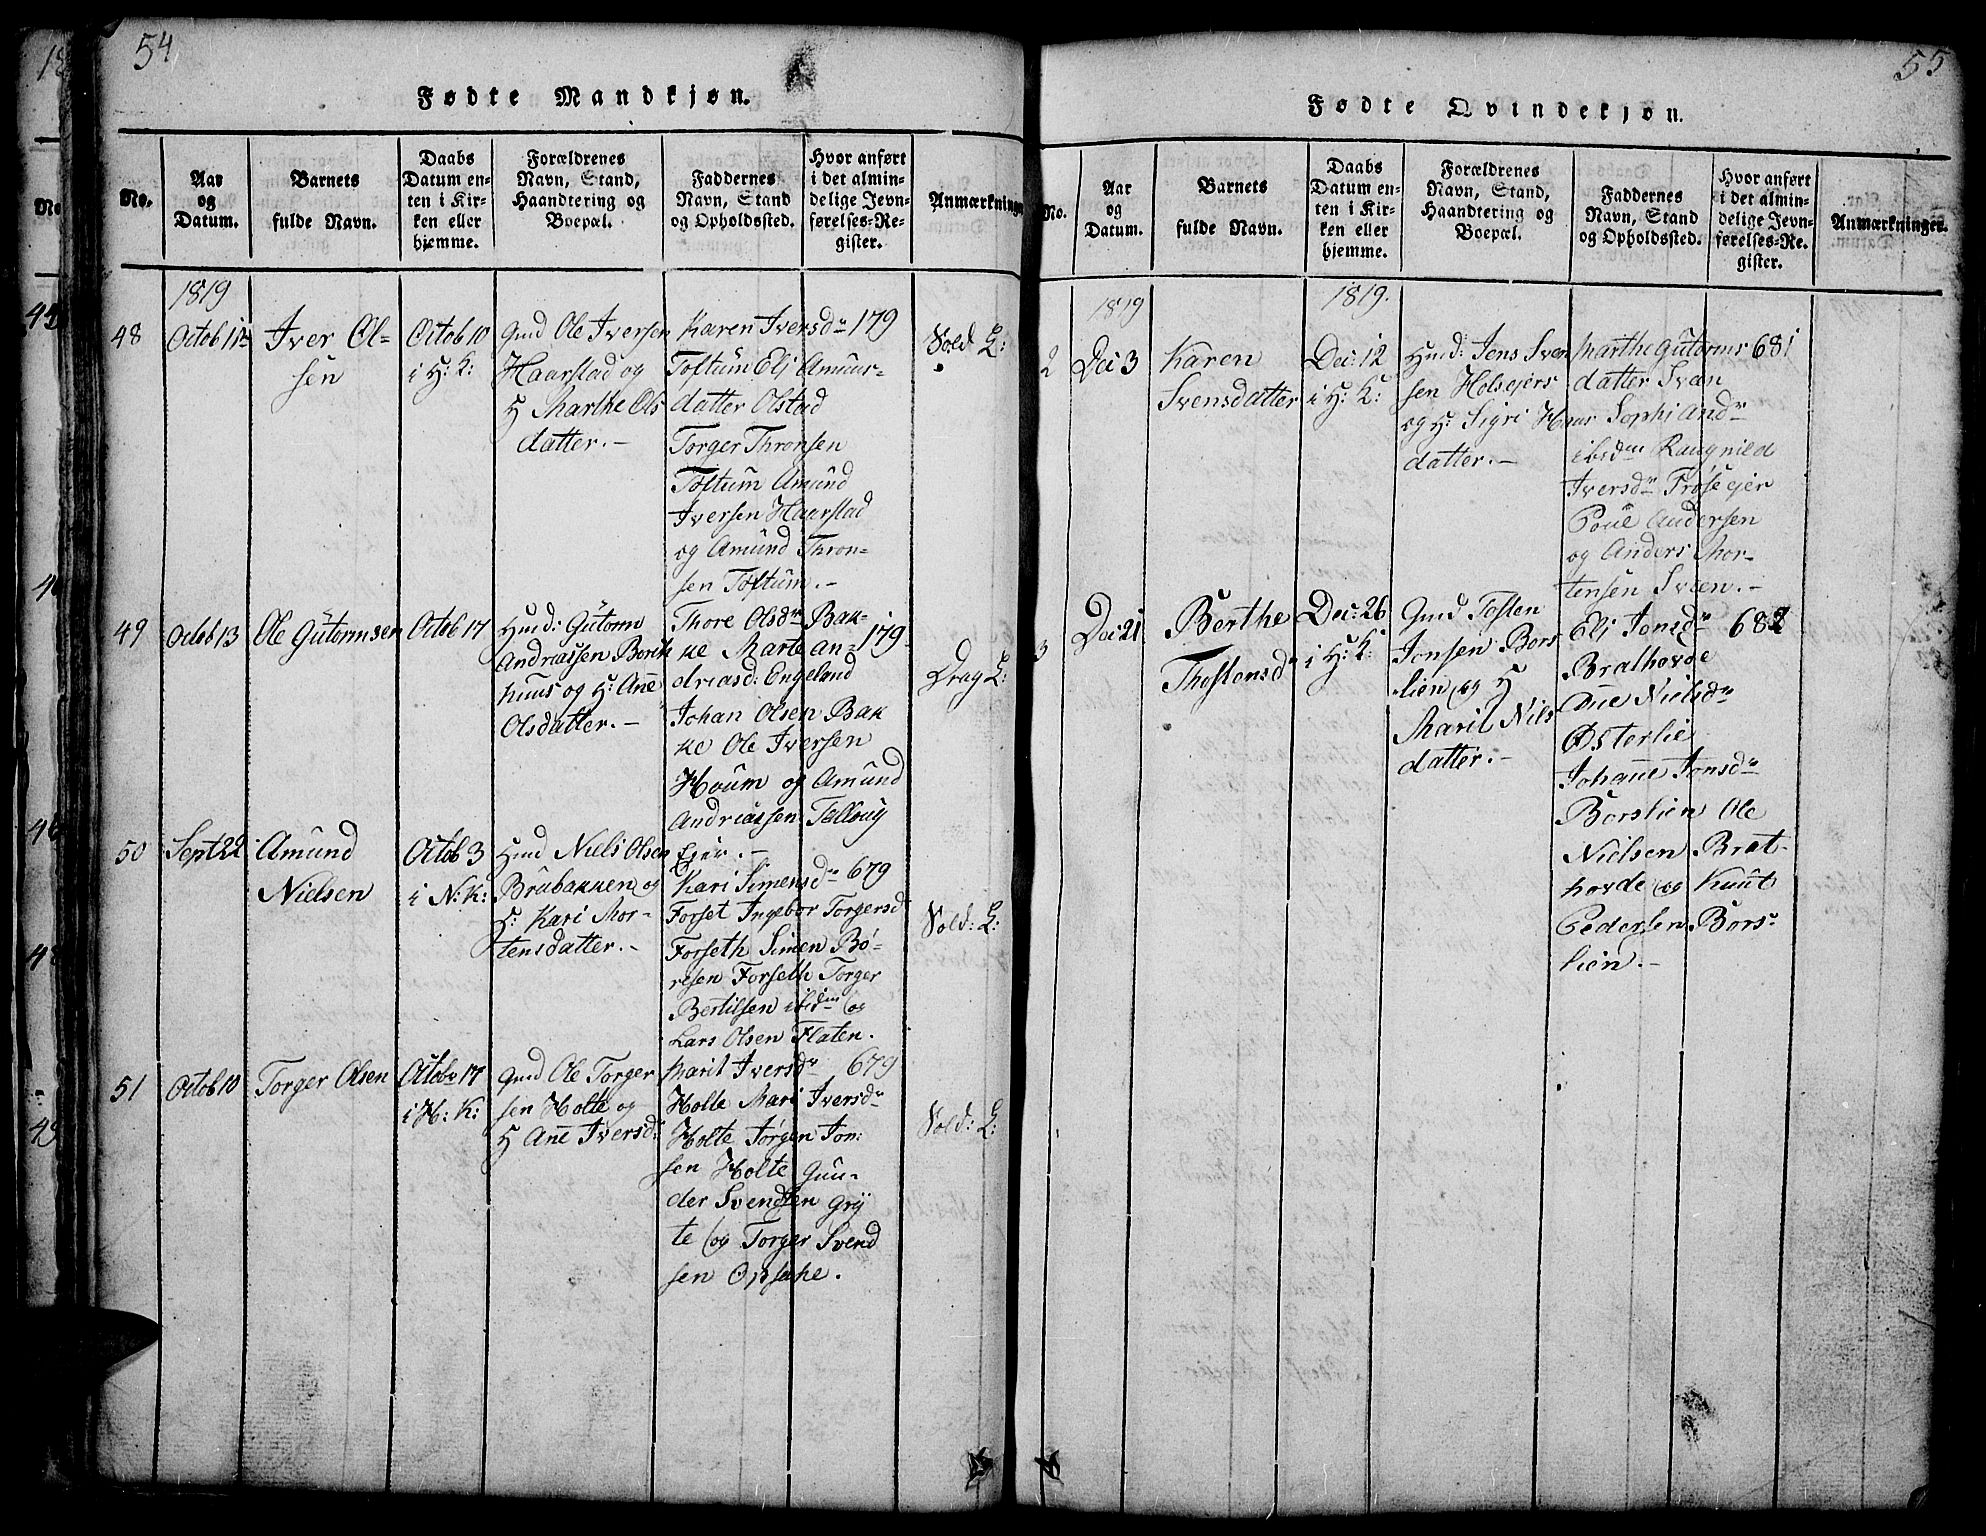 54
Fødte Mandkjøn.
No.
Aar
og
Datum.
Barnets
fulde Navn.
Daabs
Datum en-
ten i Kir-
ken eller
hjemme.
Forældrenes
Navn, Stand,
Haandtering og
Boepæl.
Faddernes
Navn, Stand
og Opholdssted.
Hvor anført
i det almin-
delige Jevn-
førelses-Re-
gister.
Anmærkninger
1819
48
Iver Ol-
sen
Octob 10
i H: K:
Gmd Ole Iversen
Haarstad og
H Marthe Ols
datter.-
Karen Iversdr
Toftum Eli Amun-
datter Olstad
Torger Thronsen
Toftum Amund
Iversen Haarstad
og Amund Thron-
sen Toftum.-
179
Vold: L:
49
Octob 13
Ole Gutormsen
Octob 17
Husmd: Gutorm
Andreassen Borik
huus og H: Ane
Olsdatter.-
Thore Olsdr Bak-
ke Marte An-
driasd: Engeland
Johan Olsen Bak
ke Ole Iversen
Houm og Amund
Andreassen Tollsug
Eier.-
179
Drag L:
50
Sept 22
Amund
Nielsen
Octob 3
i N: K:
Husmd Niels Olsen
Brubakken og
H: Kari Mor-
tensdatter.-
Kari Simensdr
Forset Ingebor Torgersd
Forseth Simen Bø-
resen Forseth Torger
Bertilsen ibidm og
Lars Olsen Flaten.
679
Vold: L:
51
Octob 10
Torger Olsen
Octobr 17
i H: K:
Gmd Ole Torger
sen Holte og
H Ane Iversd:
Marit Iversdr
Holte Mari Iversdr
Holte Jørgen Jon:
sen Holte Gun-
der Svendsen Gry
te og Torger Svend
sen Opsahe.
679
Vold: L:
55
Fødte Qvindekjøn.
No.
Aar
og
Datum.
Barnets
fulde Navn.
Daabs
Datum en-
ten i Kir-
ken eller
hjemme.
Forældrenes
Navn, Stand,
Haandtering og
Boepæl.
Faddernes
Navn, Stand
og Opholdssted.
Hvor anført
i det almin-
delige Jevn-
førelses-Re-
gister.
Anmærkninger.
1819
1819.
2
Dec 3
Karen
Svensdatter
Dec: 12
i H: K:
Husmd: Jens Sven
sen Holsejers
og H: Sigri Haar
datter.-
Marthe Gutorms
datter Svæn
Sophi Andr
ibidm Raugnild
Iversdr Frøsejer
Poul Andersen
og Anders Mor-
tensen Svæen.-
681
3
Dec: 21
Berthe
Thostensdr
Dec: 26
i H: K:
Gmd Tosten
Jonsen Bors
lien og H
Marit Nils
datter.-
Eli Jonsdr
Brathovde
Ane Nielsdr
Østerlie
Johane Jonsdr
Borslien Ole
Nielsen Brat-
hovde og Knut
Pedersen Bors-
lien.-
682